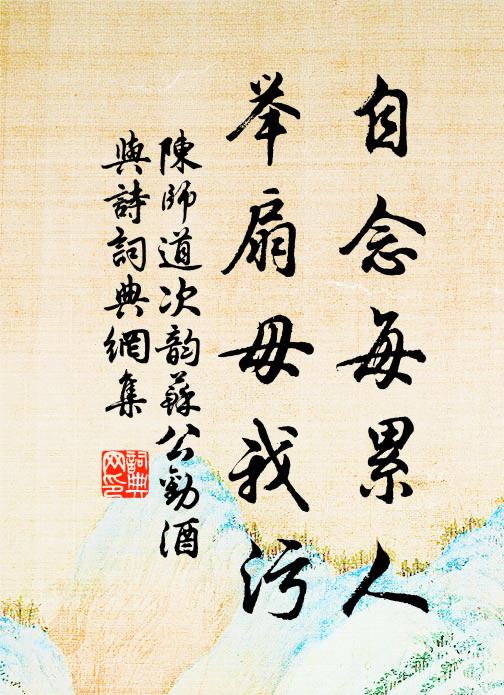 自念每累人
举扇毋我污
陳師道次韵蘇公勸酒
與詩詞典網集
詞典網印